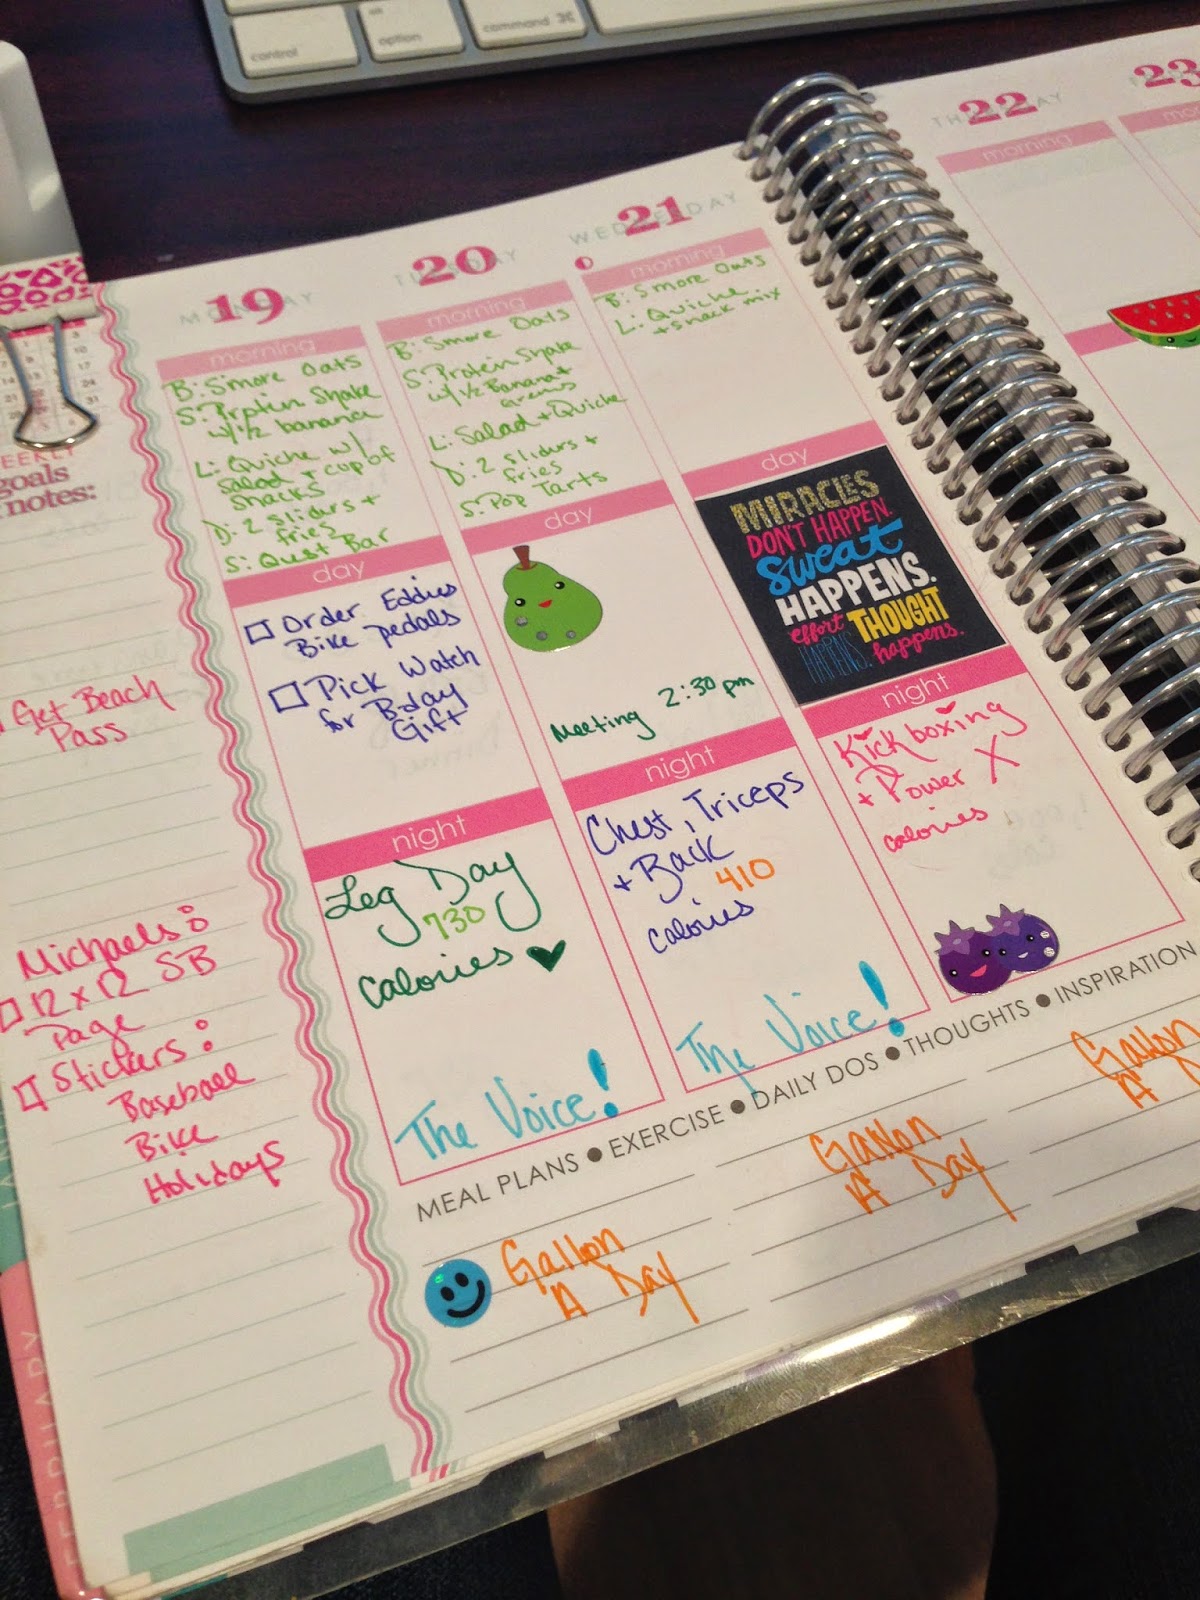 control
alt
option
command ⌘
WEEKLY
goals
notes:
Get Beach
Pass
Michaels:
12 x 12 SB
Page
Stickers:
Baseball
Bike
Holidays
19
MONDAY
morning
B: S'more Oats
S: Protein Shake
w/ 1/2 banana
L: Quiche w/
salad + cup of
snacks
D: 2 sliders +
fries
S: Quest Bar
day
Order Eddies
Bike pedals
Pick Watch
for B-day
Gift
night
Leg Day
730
calories
The Voice!
20
TUESDAY
morning
B: Smore Oats
S: Protein Shake
w/ 1/2 Banana +
L: Salad + Quiche
D: 2 sliders +
fries
S: Pop Tarts
day
Meeting 2:30 pm
night
Chest, Triceps
+ Back
410
calories
The Voice!
21
WEDNESDAY
morning
B: Smore Oats
L: Quiche
+ snack mix
day
MIRACLES
DON'T HAPPEN.
Sweat
HAPPENS.
effort THOUGHT
HAPPENS. happens.
night
Kickboxing
+ Power X
calories
22
THURSDAY
morning
23
MEAL PLANS • EXERCISE • DAILY DOS • THOUGHTS • INSPIRATION
Gallon
A Day
Gallon
A Day
Gallon
A
FEBRUARY